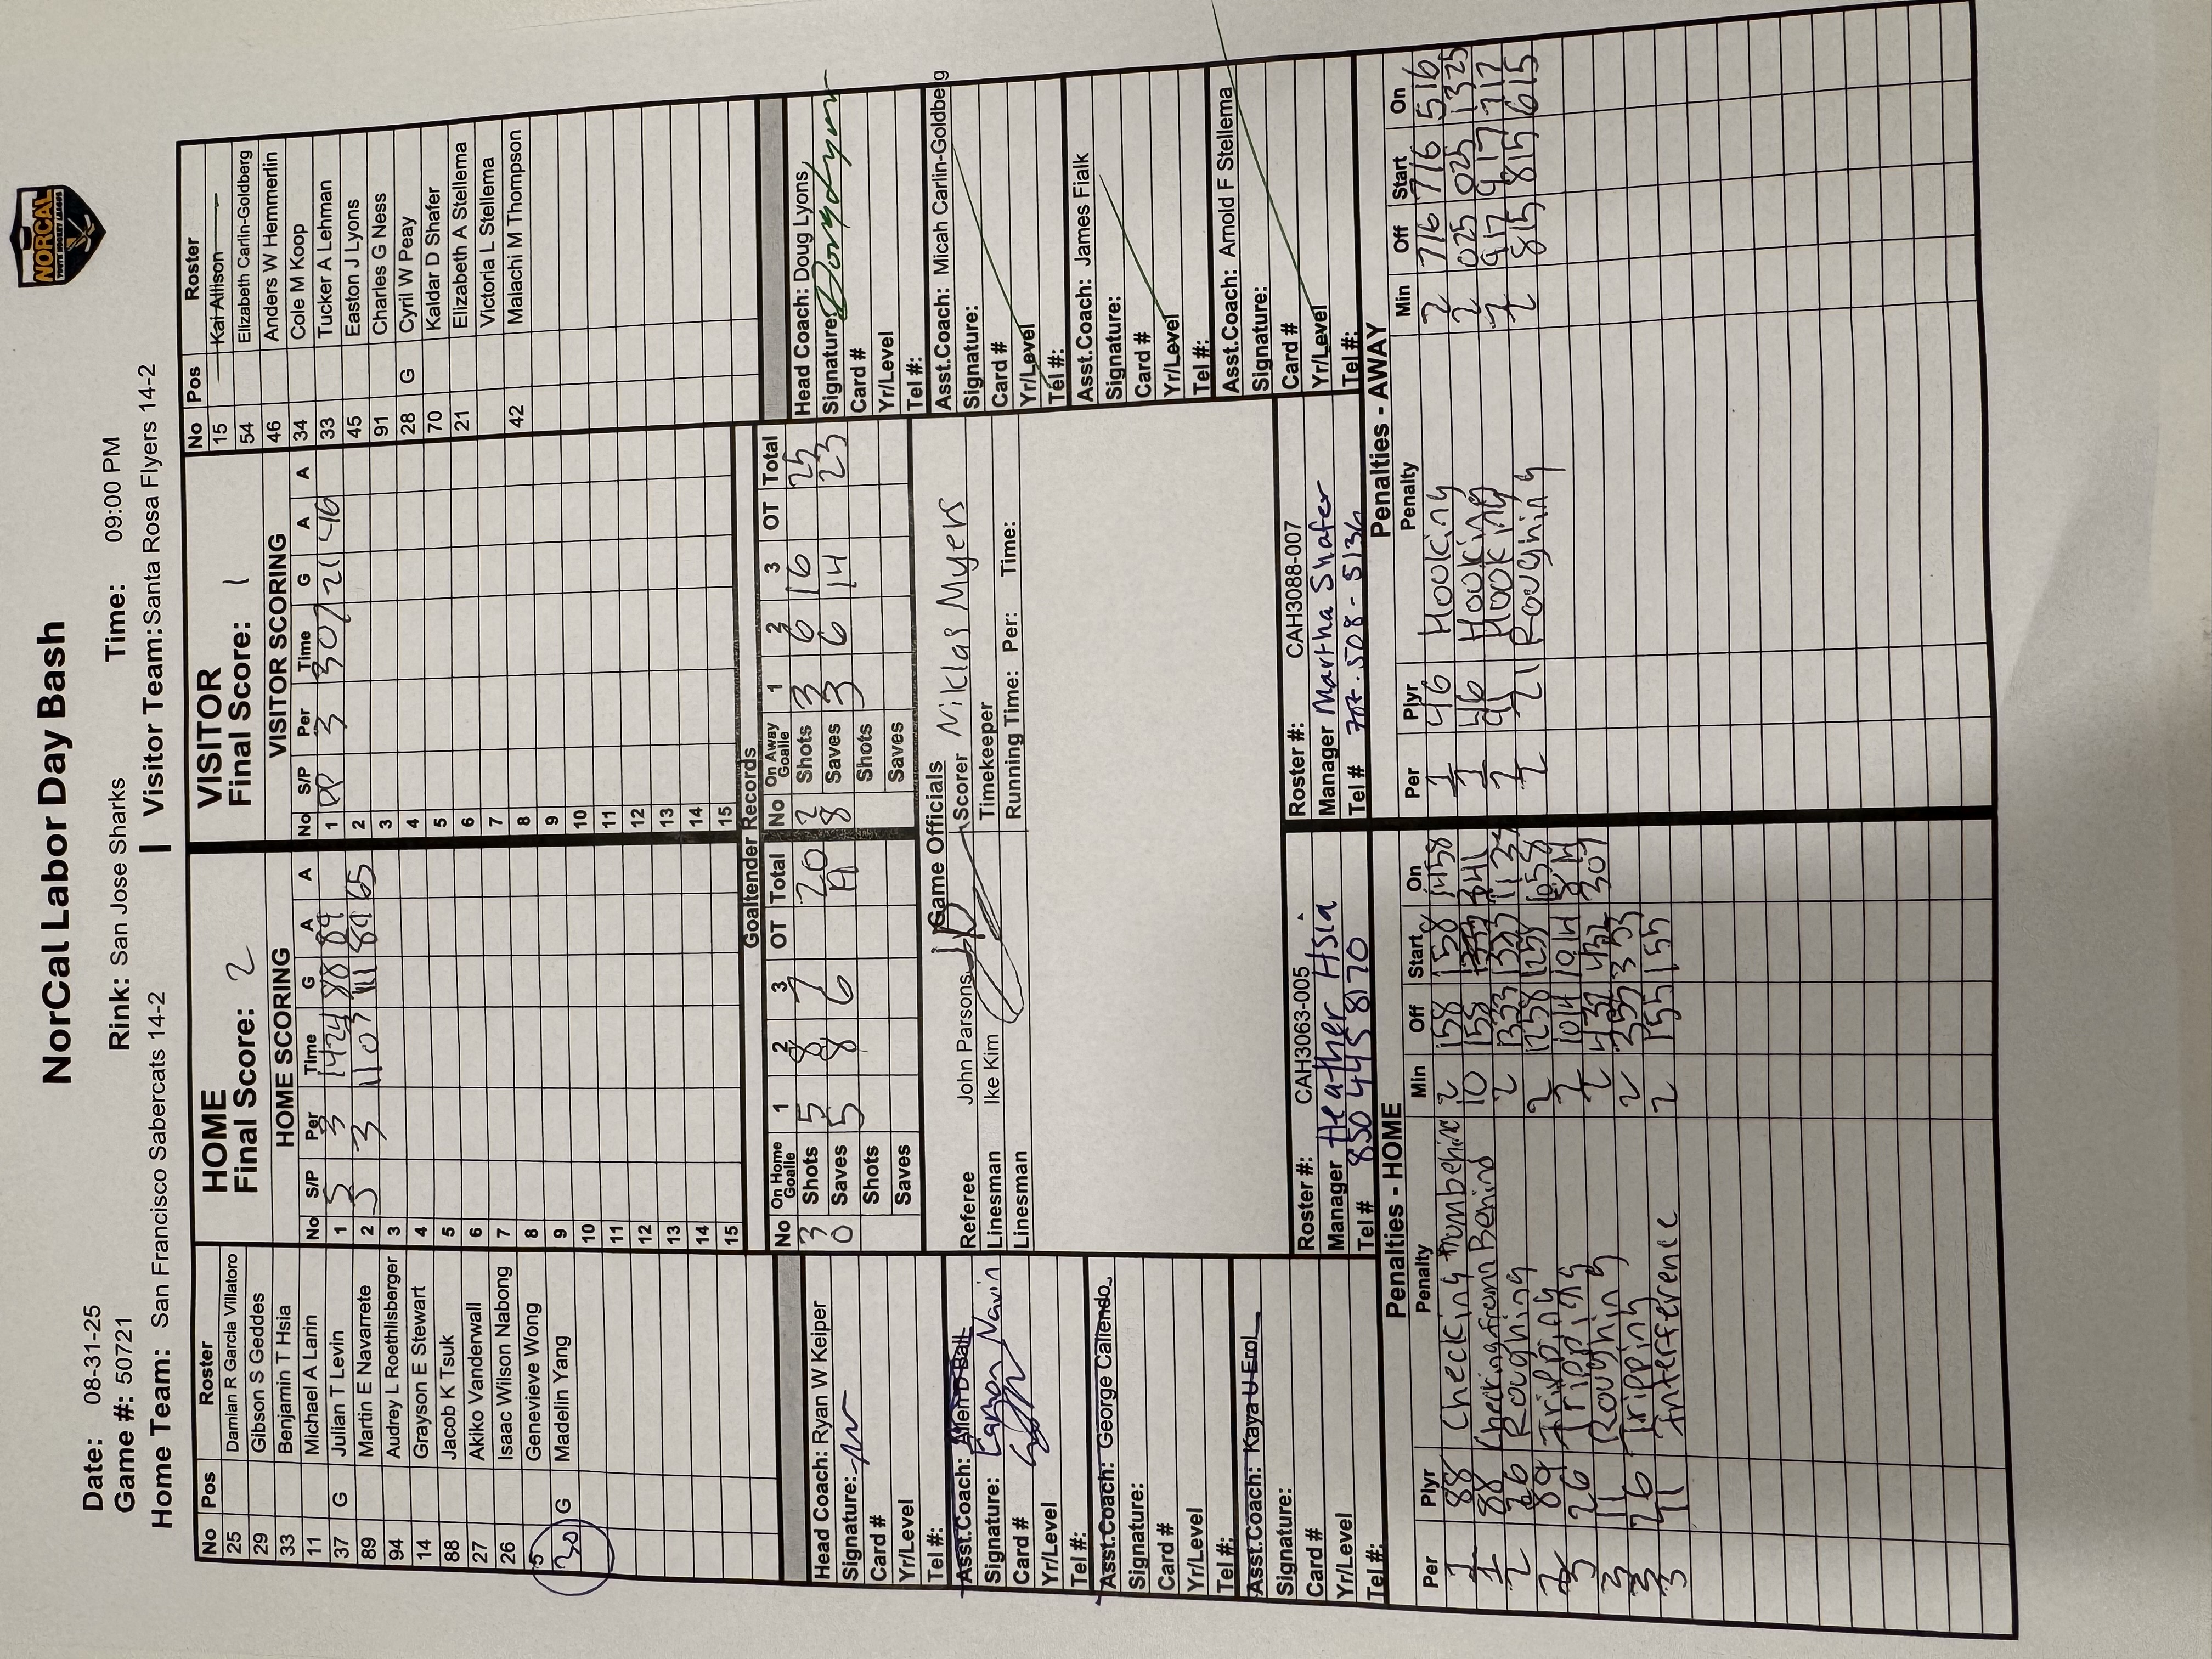 NORCAL
YOUTH HOCKEY LEAGUE
NorCal Labor Day Bash
Date: 08-31-25 Rink: San Jose Sharks Time: 09:00 PM
Game #: 50721
Home Team: San Francisco Sabercats 14-2 | Visitor Team: Santa Rosa Flyers 14-2
No Pos Roster
25 Damian R Garcia Villatoro
29 Gibson S Geddes
33 Benjamin T Hsia
11 Michael A Larin
37 G Julian T Levin
89 Martin E Navarrete
94 Audrey L Roethlisberger
14 Grayson E Stewart
88 Jacob K Tsuk
27 Akiko Vanderwall
26 Isaac Wilson Nabong
5 Genevieve Wong
30 G Madelin Yang
HOME
Final Score: 2
HOME SCORING
No S/P Per Time G A A
1 S 3 1424 88 89
2 S 3 1107 11 89 65
3
4
5
6
7
8
9
10
11
12
13
14
15
VISITOR
Final Score: 1
VISITOR SCORING
No S/P Per Time G A A
1 PP 3 307 21 46
2
3
4
5
6
7
8
9
10
11
12
13
14
15
No Pos Roster
15 Kai Allison
54 Elizabeth Carlin-Goldberg
46 Anders W Hemmerlin
34 Cole M Koop
33 Tucker A Lehman
45 Easton J Lyons
91 Charles G Ness
28 G Cyril W Peay
70 Kaldar D Shafer
21 Elizabeth A Stellema
Victoria L Stellema
42 Malachi M Thompson
Goaltender Records
No On Home Goalie 1 2 3 OT Total
30 Shots 5 8 7 20
Saves 5 8 6
Shots
Saves
No On Away Goalie 1 2 3 OT Total
28 Shots 3 6 16 25
Saves 3 6 14 23
Shots
Saves
Head Coach: Ryan W Keiper
Signature:
Card #
Yr/Level
Tel #:
Asst.Coach: Allen D Ball
Eamon Navin
Signature:
Card #
Yr/Level
Tel #:
Asst.Coach: George Caliendo
Signature:
Card #
Yr/Level
Tel #:
Asst.Coach: Kaya U Erol
Signature:
Card #
Yr/Level
Tel #:
Game Officials
Referee John Parsons
Linesman Ike Kim
Linesman
Scorer Niklas Myers
Timekeeper
Running Time: Per: Time:
Head Coach: Doug Lyons
Signature:
Card #
Yr/Level
Tel #:
Asst.Coach: Micah Carlin-Goldberg
Signature:
Card #
Yr/Level
Tel #:
Asst.Coach: James Fialk
Signature:
Card #
Yr/Level
Tel #:
Asst.Coach: Arnold F Stellema
Signature:
Card #
Yr/Level
Tel #:
Roster #: CAH3063-005
Manager Heather Hsia
Tel # 850 445 8170
Roster #: CAH3088-007
Manager Martha Shafer
Tel # 707-508-5136
Penalties - HOME
Per Plyr Penalty Min Off Start On
1 88 Checking from behind 2 158 158 1458
1 88 Checking from Behind 10 158 341
2 26 Roughing 2 1333 1333 1133
2 89 Tripping 2 1258 1258 1058
3 26 Tripping 2 1014 1014 814
3 11 Roughing 2 432 432 307
3 26 Tripping 2 355 355
3 11 Interference 2 155 155
Penalties - AWAY
Per Plyr Penalty Min Off Start On
1 46 Hooking 2 716 716 516
1 46 Hooking 2 025 025 1325
2 91 Hooking 2 917 917 717
2 21 Roughing 2 815 815 615